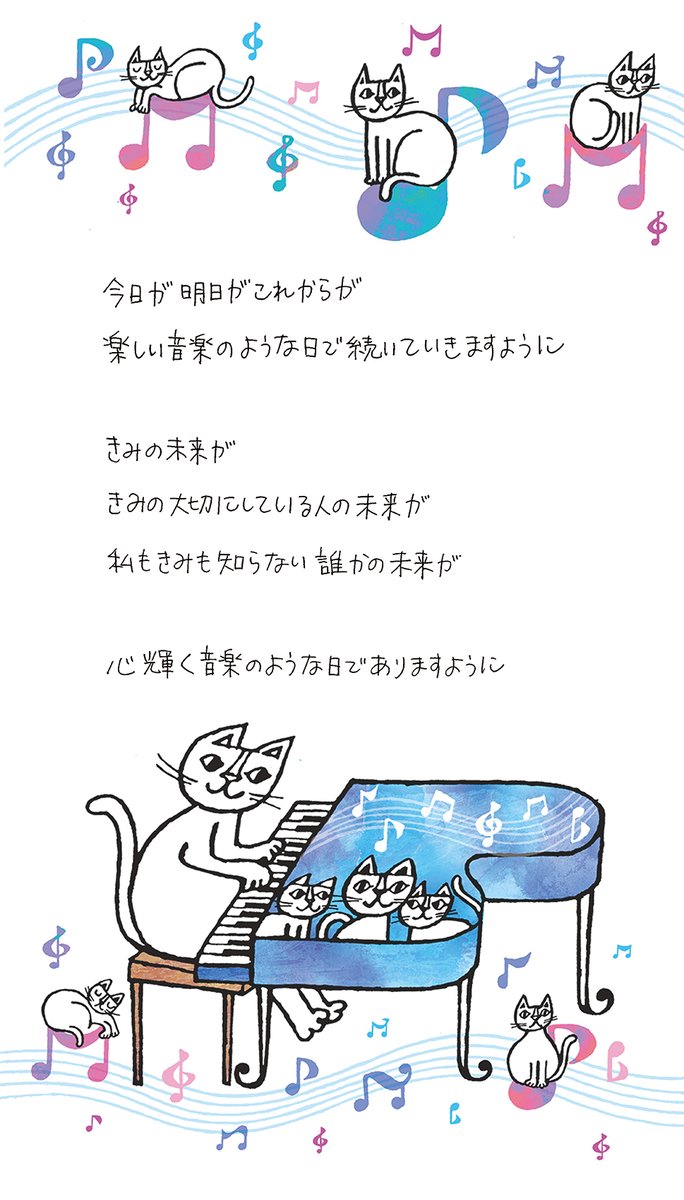 今日が 明日が これからが
楽しい音楽のような日で続いていきますように
きみの未来が
きみの大切にしている人の未来が
私もきみも知らない 誰かの未来が
心輝く音楽のような日でありますように